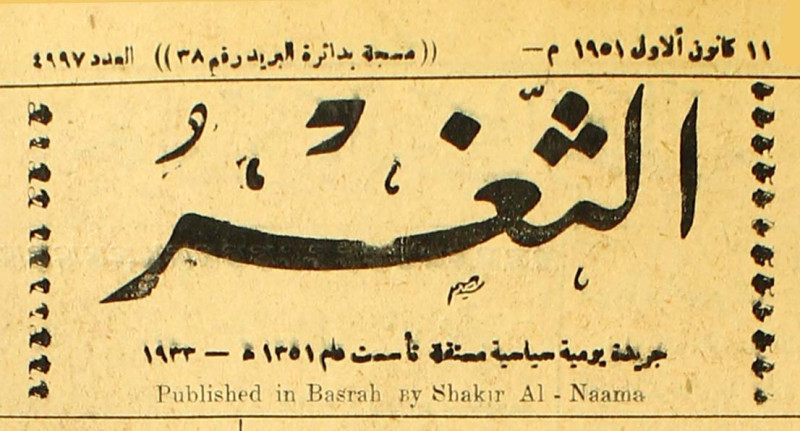 ١١ كانون ألاول ١٩٥١ م — ((مسجلة بدائرة البريد رقم ٣٨)) العدد ٤٩٩٧
الثَّغْرُ
جريدة يومية سياسية مستقلة تأسست عام ١٣٥١ ه — ١٩٣٣
Published in Basrah By Shakir Al - Naama